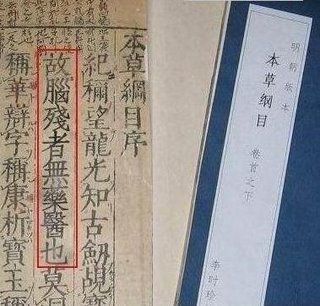 本草綱目序
紀稱望龍光知古劍覘寶
故腦殘者無藥醫也莫
稱華辯字稱康析寶玉稱
明新版本
本草纲目
卷首之下
李时珍